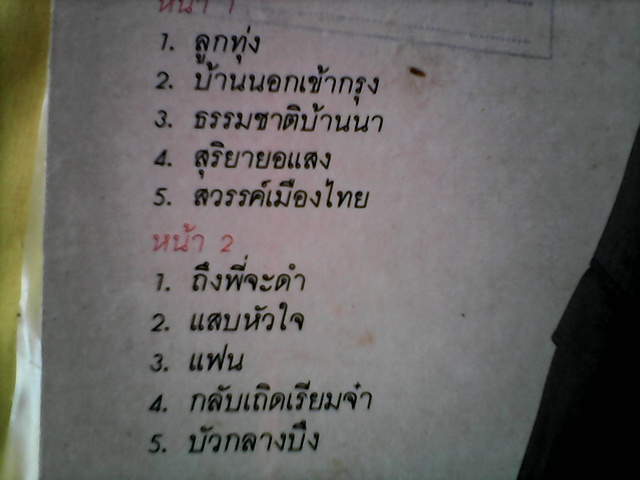 หน้า 1
1. ลูกทุ่ง
2. บ้านนอกเข้ากรุง
3. ธรรมชาติบ้านนา
4. สุริยายอแสง
5. สวรรค์เมืองไทย
หน้า 2
1. ถึงพี่จะดำ
2. แสบหัวใจ
3. แฟน
4. กลับเถิดเรียมจ๋า
5. บัวกลางบึง